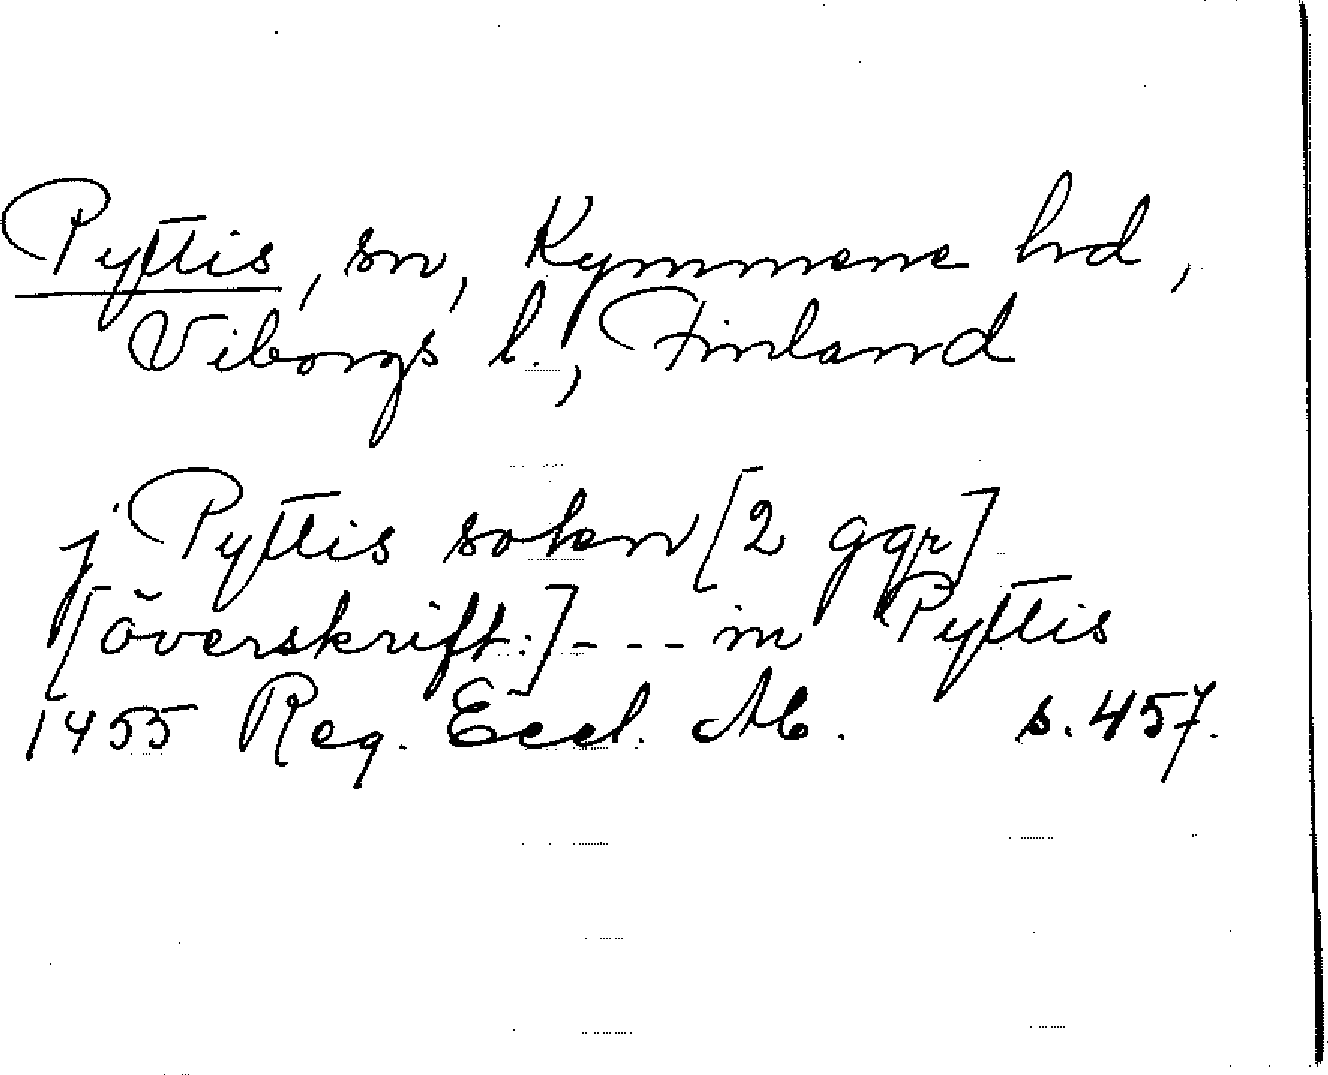 Pyttis, sn, Kymmene hd,
Viborgs l., Finland
j Pyttis sokn [2 ggr]
[överskrift:] - - - in Pyttis
1455 Reg. Eccl. Ab. s. 457.